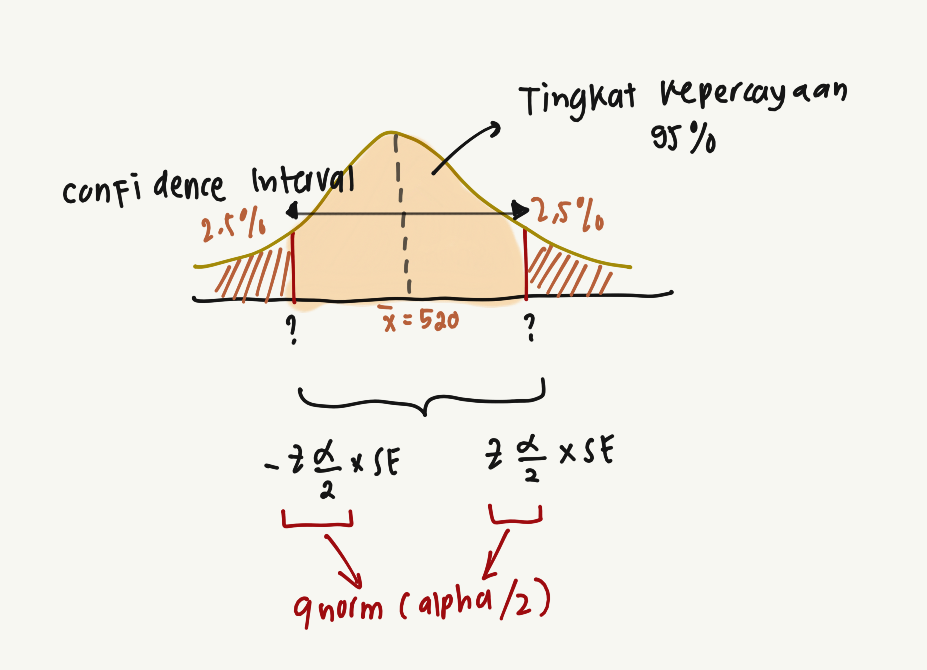 Tingkat Kepercayaan
95%
Confidence Interval
2.5%
2,5%
?
x̄ = 520
?
- z α/2 x SE
z α/2 x SE
qnorm (alpha/2)